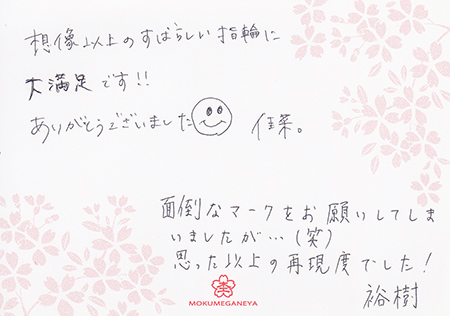 想像以上のすばらしい指輪に
大満足です!!
ありがとうございました 佳菜。
面倒なマークをお願いしてしま
いましたが…(笑)
思った以上の再現度でした!
裕樹
MOKUMEGANEYA